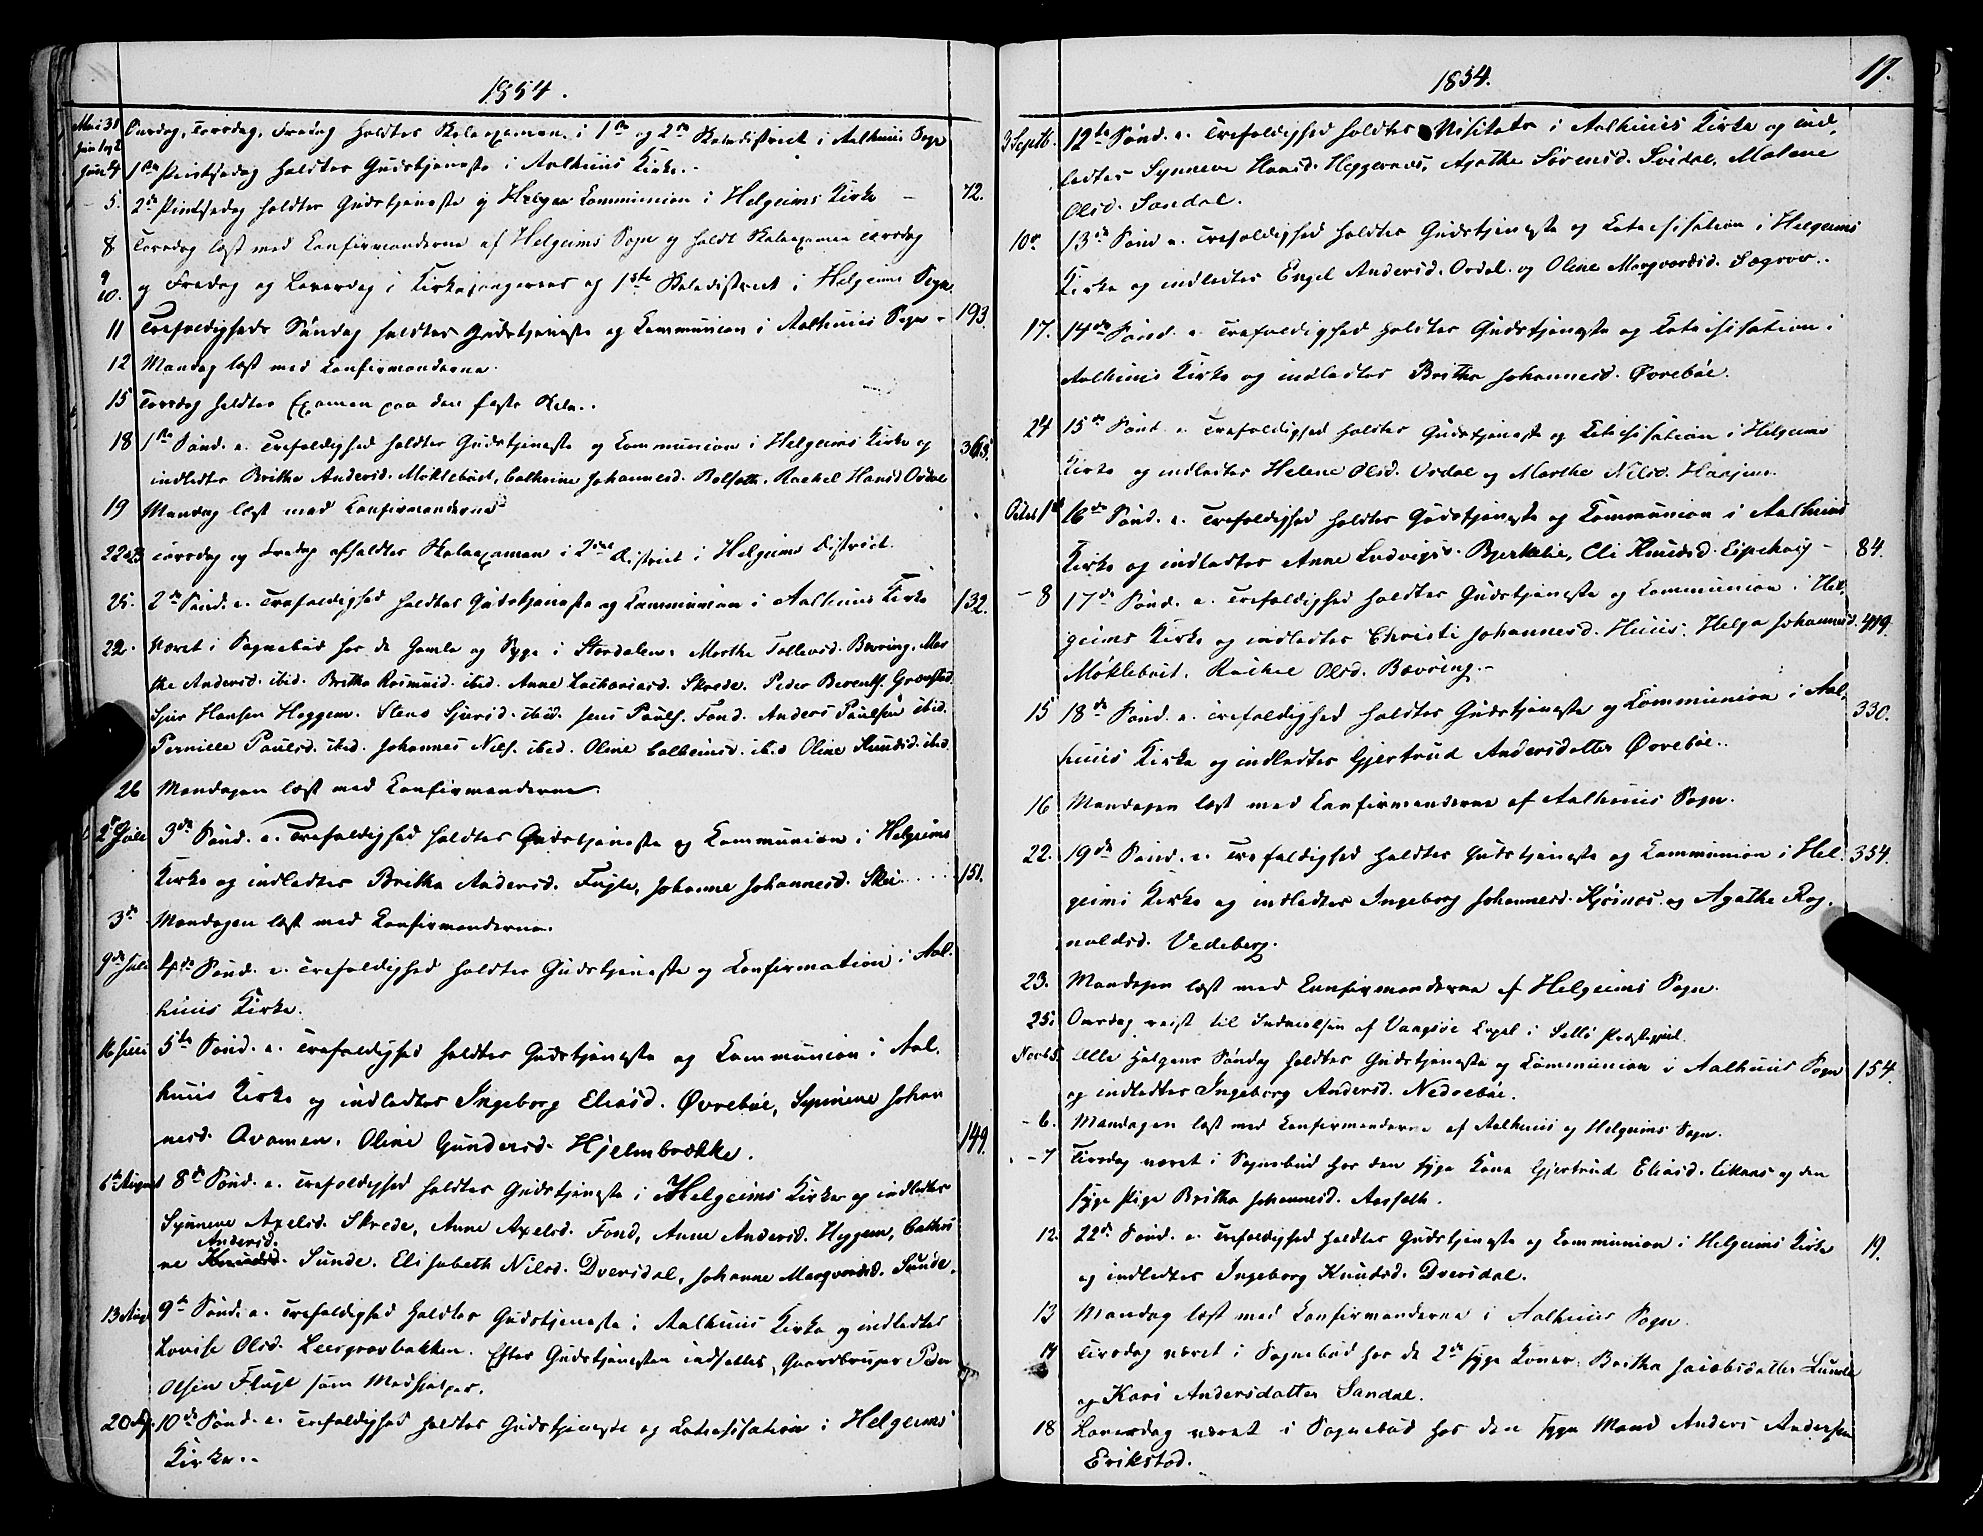 1854.
Mai 31 Onsdag, Torsdag, Fredag holdtes Skoleexamen i 1ste og 2den Skoledistrict i Aalhuus Sogn
Juni 1 og 2
Juni 4 1ste Pintsedag holdtes Gudstjeneste i Aalhuus Kirke.
5. 2den Pintsedag holdtes Gudstjeneste og Communion i Helgeims Kirke – 72.
8 Torsdag læst med Confirmanderne af Helgeims Sogn og holdt Skoleexamen Torsdag
9 10. og Fredag og Løverdag i Kirkesangerens og 1ste Skoledistrict i Helgeims Sogn
11 Trefoldigheds Søndag holdtes Gudstjeneste og Communion i Aalhuus Sogn – 193.
12 Mandag læst med Confirmanderne.
15 Torsdag holdtes Examen paa den faste Skole.
18 1ste Sønd. e. Trefoldighed holdtes Gudstjeneste og Communion i Helgeims Kirke og
indledtes Britha Andersd. Møklebust, Cathrine Johannesd. Bolseth, Rachel Hansd Ordal
19 Mandag læst med Confirmanderne
22 23 Torsdag og Fredag afholdtes Skoleexamen i 2det District i Helgeims District.
25. 2den Sønd. e. Trefoldighed holdtes Gudstjeneste og Communion i Aalhuus Kirke 132.
22. Været i Sognebud hos de Gamle og Syge i Stardalen: Marthe Tollevsd. Bævring, Mar
the Andersd. ibid. Britha Rasmusd. ibid. Anne Zachariasd. Skrede. Peder Berents.
Sjur Hansen Heggem. Sjursd. ibid. Jens Pauls. Fond. Anders Paulsen ibid.
Pernille Paulsd. ibid. Johannes Nils. ibid. Oline ibid Oline Knudsd. ibid.
26 Mandagen læst med Confirmanderne.
2den Juli 3die Sønd. e. Trefoldighed holdtes Gudstjeneste og Communion i Helgeims
Kirke og indledtes Britha Andersd. Fugle, Johanne Johannesd. Skei 151.
3die Mandagen læst med Confirmanderne.
9de Juli 4de Sønd. e. Trefoldighed holdtes Gudstjeneste og Confirmation i Aal-
huus Kirke.
16 Juli 5te Sønd. e. Trefoldighed holdtes Gudstjeneste og Communion i Aal-
huus Kirke og indledtes Ingeborg Eliasd. Øvrebøe, Synneve Johan
nesd. Aramen. Oline Gundersd. Hjelmbrække. 149.
6te August 8de Sønd. e. Trefoldighed holdtes Gudstjeneste i Helgeims Kirke og indledtes
Synneve Axelsd. Skrede, Anne Axelsd. Fond, Anne Andersd. Heggem, Cathri
Andersd.
ne Knudsd. Sunde. Elisabeth Nilsd. Dversdal, Johanne Marqvardsd. Sunde.
13 Aug 9de Sønd. e. Trefoldighed holdtes Gudstjeneste i Aalhuus Kirke og indledtes
Lovise Olsd. Leergravbakken. Efter Gudstjenesten indsattes Gaardbruger Peder
Olsen Flugt som Medhjelper.
20 10de Sønd. e. Trefoldighed holdtes Gudstjeneste og Catechisation i Helgeims
Kirke.
1854. 17.
3 Septb. 12te Sønd. e. Trefoldighed holdtes Visitats i Aalhuus Kirke og ind-
ledtes Synneve Hansd. Heggernæs, Agathe Sørensd. Svidal, Malene
Olsd. Sandal.
10de 13de Sønd e. Trefoldighed holdtes Gudstjeneste og Catechisation i Helgeims
Kirke og indledtes Engel Andersd. Ordal og Oline Marqvardsd. Sægrov.
17. 14de Sønd. e. Trefoldighed holdtes Gudstjeneste og Catechisation i
Aalhuus Kirke og indledtes Britha Johannesd. Øvrebøe.
24 15de Sønd. e. Trefoldighed holdtes Gudstjeneste og Catechisation i Helgeims
Kirke og indledtes Helene Olsd. Ordal og Marthe Nilsd.
Octob 1ste 16de Sønd. e. Trefoldighed holdtes Gudstjeneste og Communion i Aalhuus
Kirke og indledtes Anne Ludvigsd. Bjerkelie, Eli Knudsd. Eipehaug – 84.
– 8 17de Sønd. e. Trefoldighed holdtes Gudstjeneste og Communion i Hel-
geims Kirke og indledtes Christi Johannesd. Huus. Helga Johannesd. 419.
Møklebust. Rachel Olsd. Bævring. –
15 18de Sønd. e. Trefoldighed holdtes Gudstjeneste og Communion i Aal- 330.
huus Kirke og indledtes Gjertrud Andersdatter Øvrebøe.
16 Mandagen læst med Confirmanderne af Aalhuus Sogn.
22. 19de Sønd. e. Trefoldighed holdtes Gudstjeneste og Communion i Hel- 354.
geims Kirke og indledtes Ingeborg Johannesd. Kjøsnæs og Agathe Rag-
naldsd. Vedeberg.
23. Mandagen læst med Confirmanderne af Helgeims Sogn.
25. Onsdag reist til Indvielsen af Vaagsøe Capel i Sellø Præstegjeld.
Novb 5. Alle Helgens Søndag holdtes Gudstjeneste og Communion i Aalhuus Sogn 154.
og indledtes Ingeborg Andersd. Nedrebøe.
– 6. Mandagen læst med Confirmanderne af Aalhuus og Helgeims Sogn.
– 7 Tirsdag været i Sognebud hos den syge Kone Gjertrud Eliasd. Eikaas og den
syge Pige Britha Johannesd. Aarseth.
12. 22de Sønd. e. Trefoldighed holdtes Gudstjeneste og Communion i Helgeims Kirke 19.
og indledtes Ingeborg Knudsd. Dversdal.
13 Mandag læst med Confirmanderne i Aalhuus Sogn.
14 Tirsdag været i Sognebud hos de 2de syge Koner: Britha Jacobsdatter Lunde
og Kari Andersdatter Sandal.
18 Løverdag været i Sognebud hos den syge Mand Anders Andersen
Erikstad.